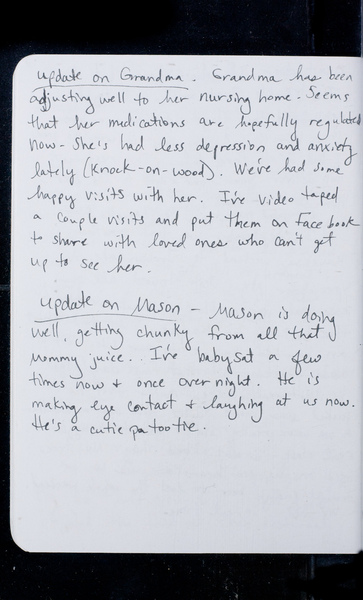 update on Grandma. Grandma has been
adjusting well to her nursing home. Seems
that her medications are hopefully regulated
now - She's had less depression and anxiety
lately (knock-on-wood). We've had some
happy visits with her. I've video taped
a couple visits and put them on Facebook
to share with loved ones who can't get
up to see her.
update on Mason - Mason is doing
well, getting chunky from all that
mommy juice.. I've babysat a few
times now + once overnight. He is
making eye contact + laughing at us now.
He's a cutie patootie.